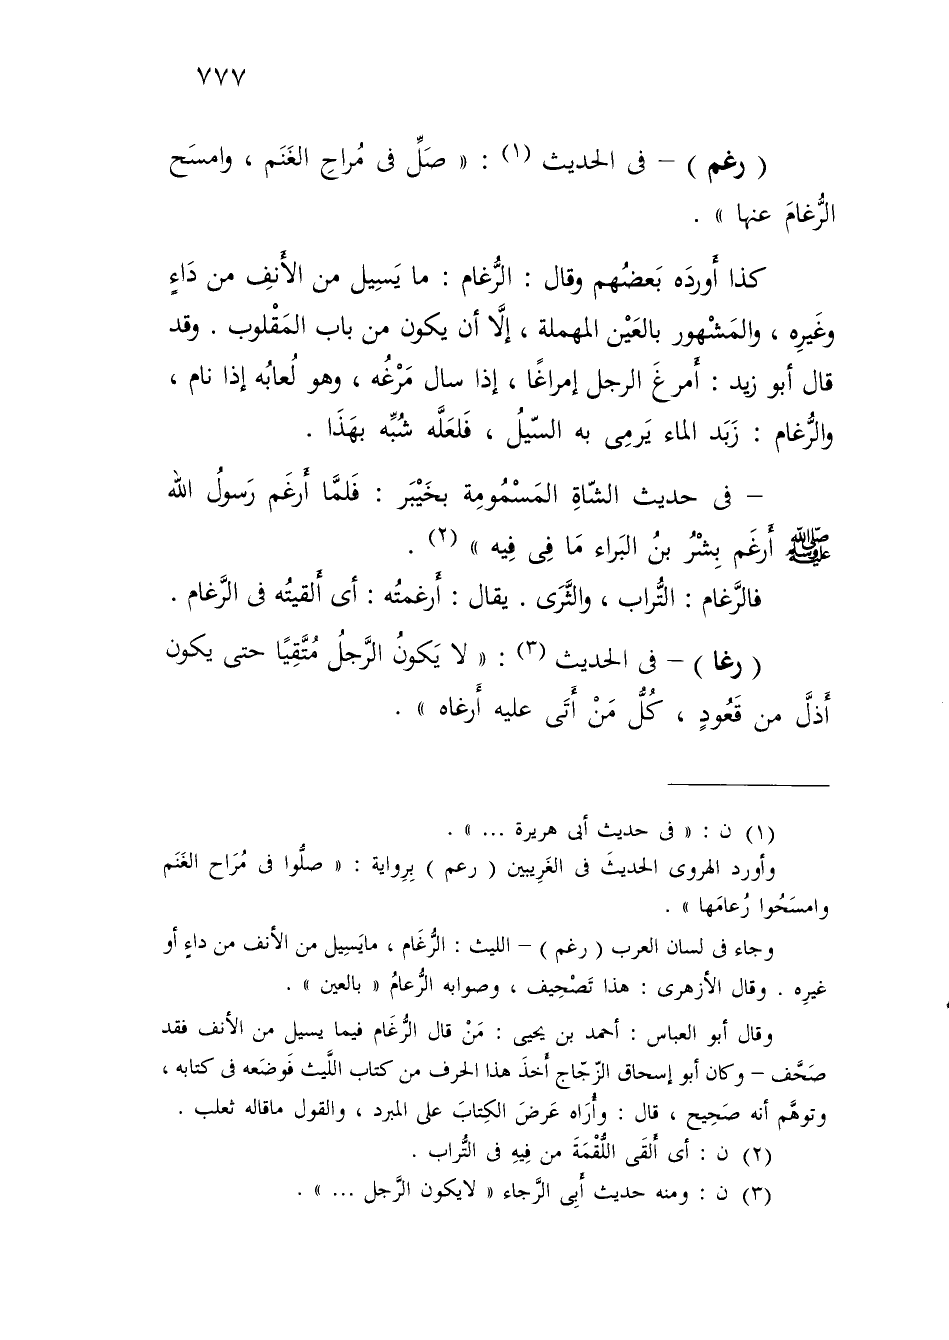 ٧٧٧
( رغم ) – فى الحديث (١) : « صَلِّ فى مُراحِ الغَنَم ، وامسَح
الرُّغامَ عنها » .
كذا أَوردَه بَعضُهم وقال : الرُّغام : ما يَسِيل من الأَنفِ من دَاءٍ
وغَيرِه ، والمَشْهور بالعَيْن المهملة ، إلَّا أن يكون من باب المَقْلوب . وقد
قال أبو زيد : أَمرغَ الرجل إمراغًا ، إذا سال مَرْغُه ، وهو لُعابُه إذا نام ،
والرُّغام : زَبَد الماء يَرمِى به السّيلُ ، فَلعَلَّه شُبِّه بهَذَا .
– فى حديث الشّاةِ المَسْمُومِة بخَيْبَر : فَلمَّا أَرغَم رَسولُ الله
ﷺ أَرغَم بِشْرُ بنُ البَراء مَا فِى فِيه » (٢) .
فالرَّغام : التُّراب ، والثَّرَى . يقال : أَرغمتُه : أى أَلقيتُه فى الرَّغام .
( رغا ) – فى الحديث (٣) : « لا يَكونُ الرَّجلُ مُتَّقِيًا حتى يكون
أَذلَّ من قَعُودٍ ، كُلُّ مَنْ أَتَى عليه أَرغاه » .
(١) ن : « فى حديث أبى هريرة ... » .
وأورد الهروى الحديثَ فى الغَرِيبين ( رعم ) بِرِواية : « صلُّوا فى مُرَاح الغَنَم
وامسَحُوا رُعامَها » .
وجاء فى لسان العرب ( رغم ) – الليث : الرُّغَام ، مايَسِيل من الأنف من داءٍ أو
غيرِه . وقال الأزهرى : هذا تَصْحِيف ، وصوابه الرُّعامُ « بالعين » .
وقال أبو العباس : أحمد بن يحيى : مَنْ قال الرُّغَام فيما يسيل من الأنف فقد
صَحَّف – وكان أبو إسحاق الزّجّاج أَخذَ هذا الحرف من كتاب اللَّيث فَوضَعه فى كتابه ،
وتوهَّم أنه صَحِيح ، قال : وأُرَاه عَرضَ الكِتابَ على المبرد ، والقول ماقاله ثعلب .
(٢) ن : أى أَلقَى اللُّقْمَةَ من فِيهِ فى التُّراب .
(٣) ن : ومنه حديث أَبِى الرَّجاء « لايكون الرَّجل ... » .